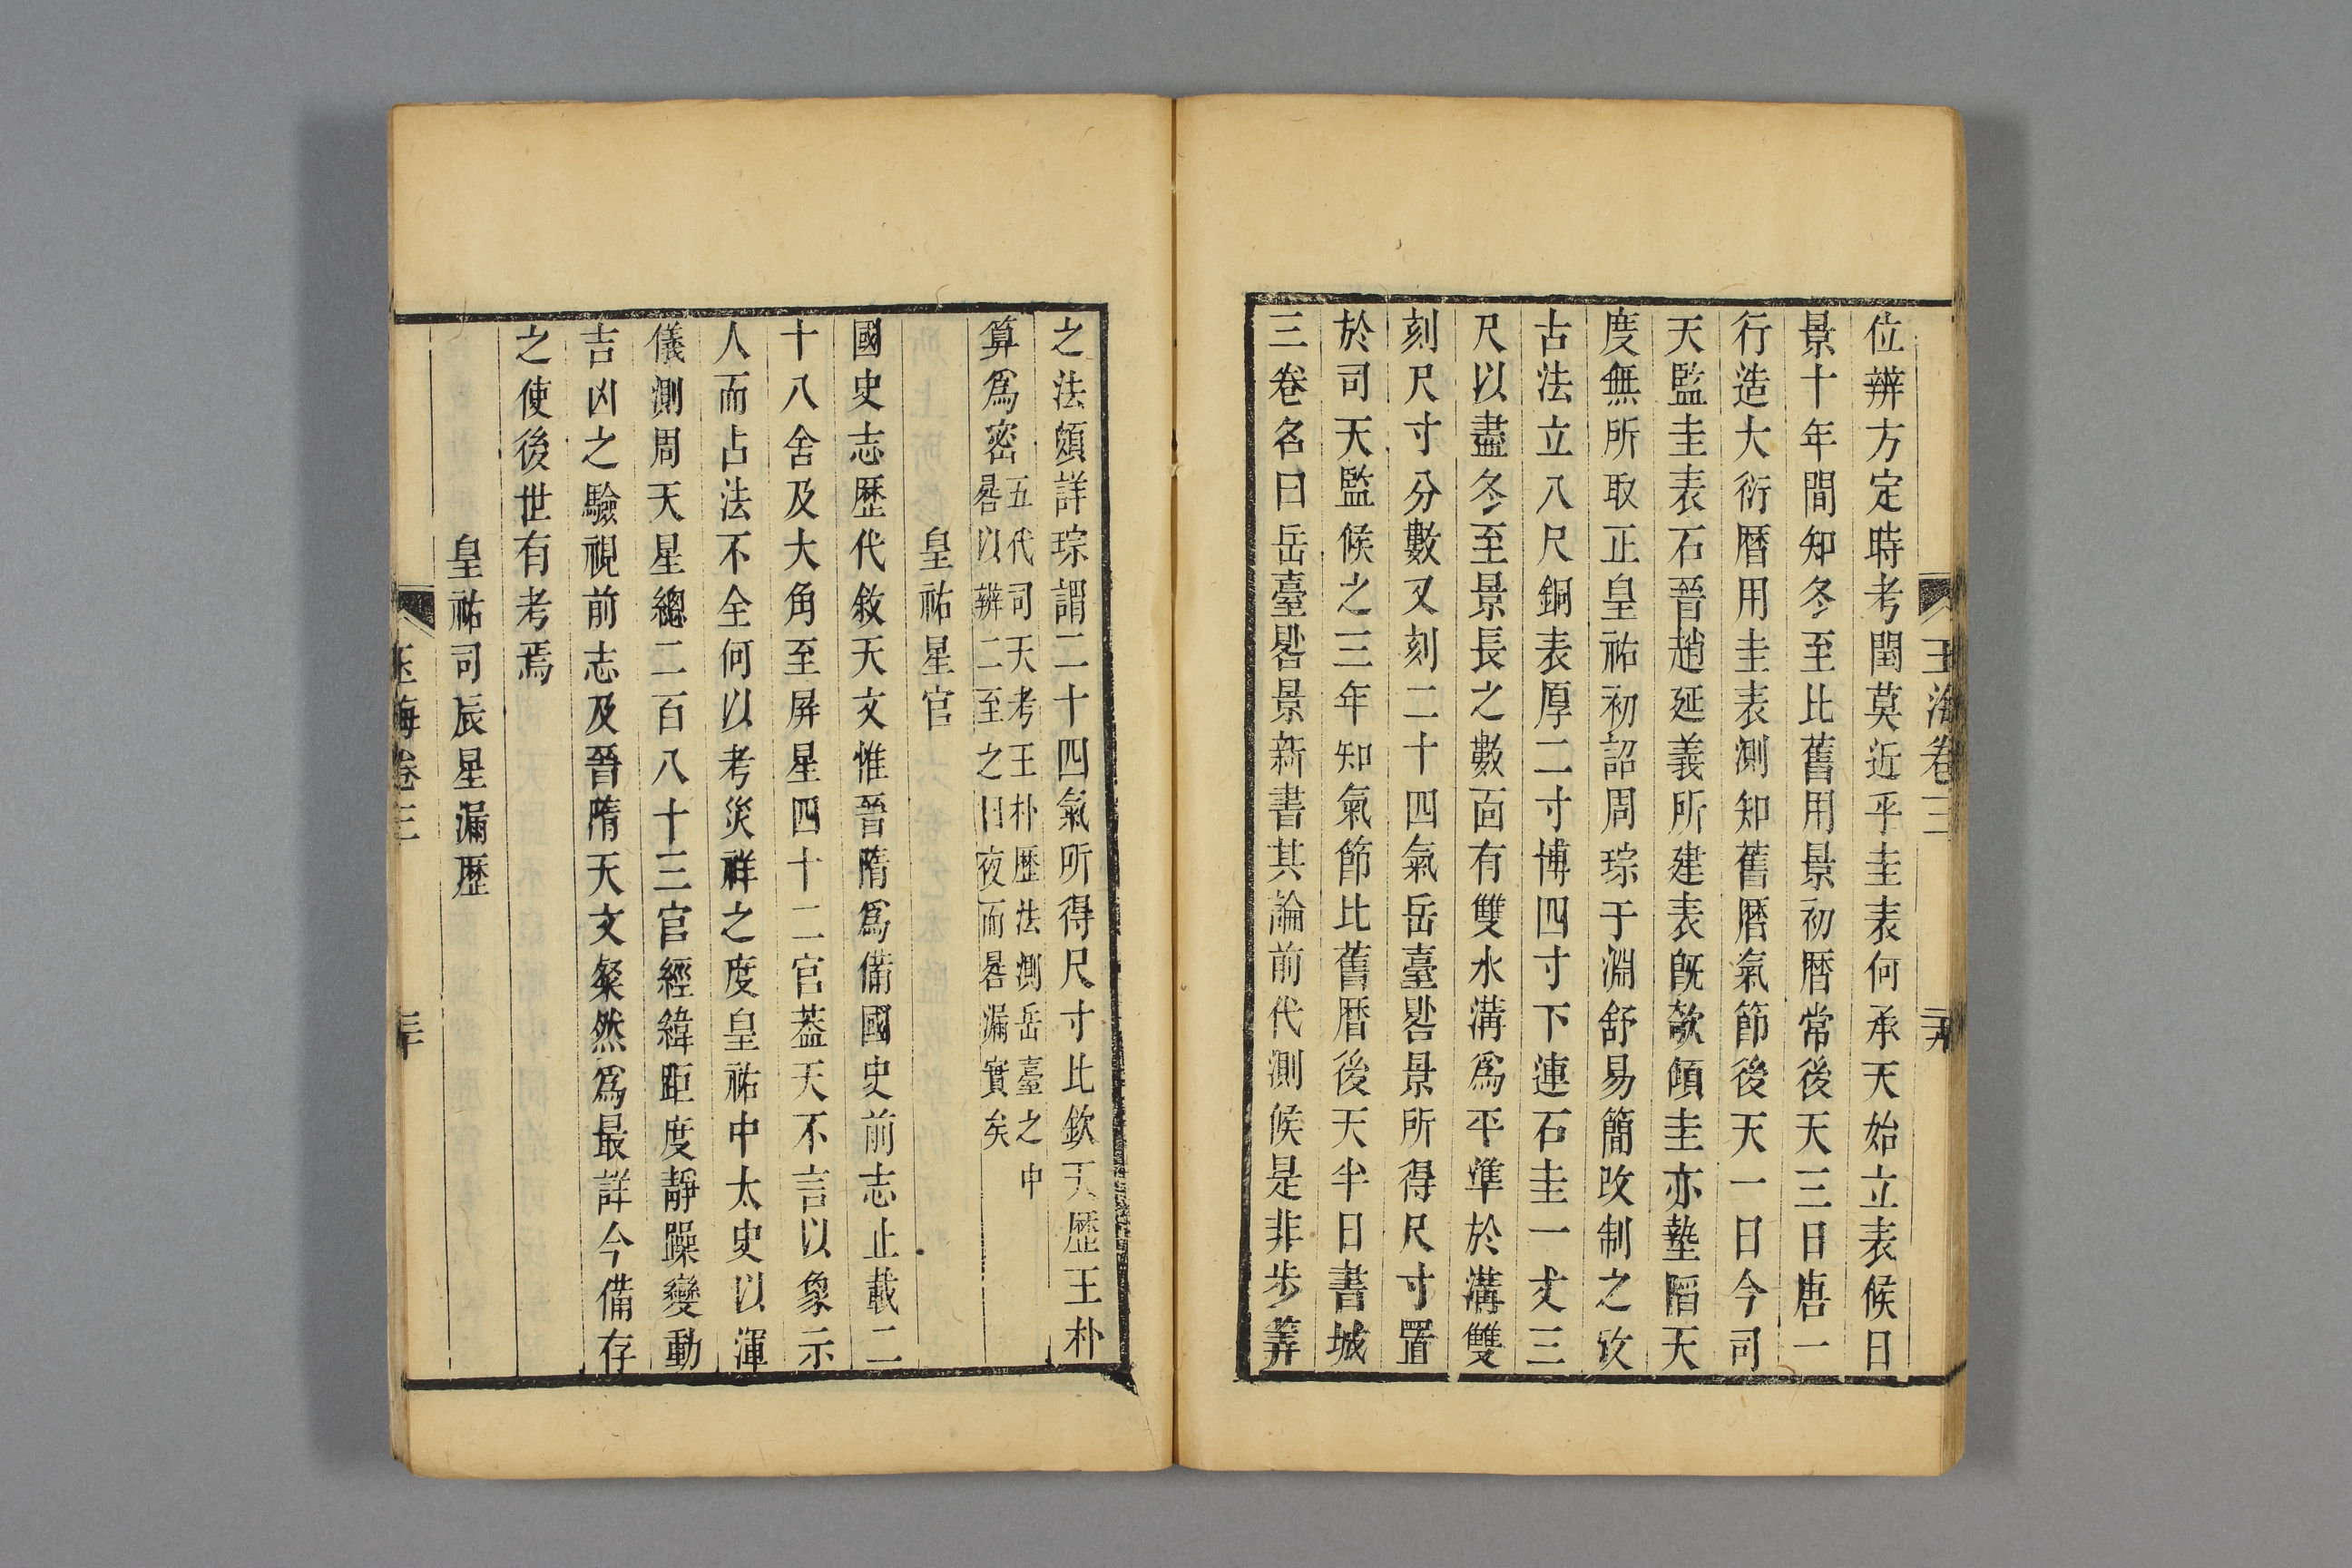 玉海卷三
二十九
位辨方定時考閏莫近乎圭表何承天始立表候日
景十年間知冬至比舊用景初曆常後天三日唐一
行造大衍曆用圭表測知舊曆氣節後天一日今司
天監圭表石晉趙延義所建表既欹傾圭亦墊陷天
度無所取正皇祐初詔周琮于淵舒易簡改制之攷
古法立八尺銅表厚二寸博四寸下連石圭一丈三
尺以盡冬至景長之數面有雙水溝爲平準於溝雙
刻尺寸分數又刻二十四氣岳臺晷景所得尺寸置
於司天監候之三年知氣節比舊曆後天半日書城
三卷名曰岳臺晷景新書其論前代測候是非步筭
之法頗詳琮謂二十四氣所得尺寸比欽天歷王朴
算爲密五代司天考王朴歷法測岳臺之中
晷以辨二至之日夜而晷漏實矣
皇祐星官
國史志歷代敘天文惟晉隋爲備國史前志止載二
十八舍及大角至屏星四十二官蓋天不言以象示
人而占法不全何以考災祥之度皇祐中太史以渾
儀測周天星總二百八十三官經緯距度靜躁變動
吉凶之驗視前志及晉隋天文粲然爲最詳今備存
之使後世有考焉
皇祐司辰星漏歷
玉海卷三
三十